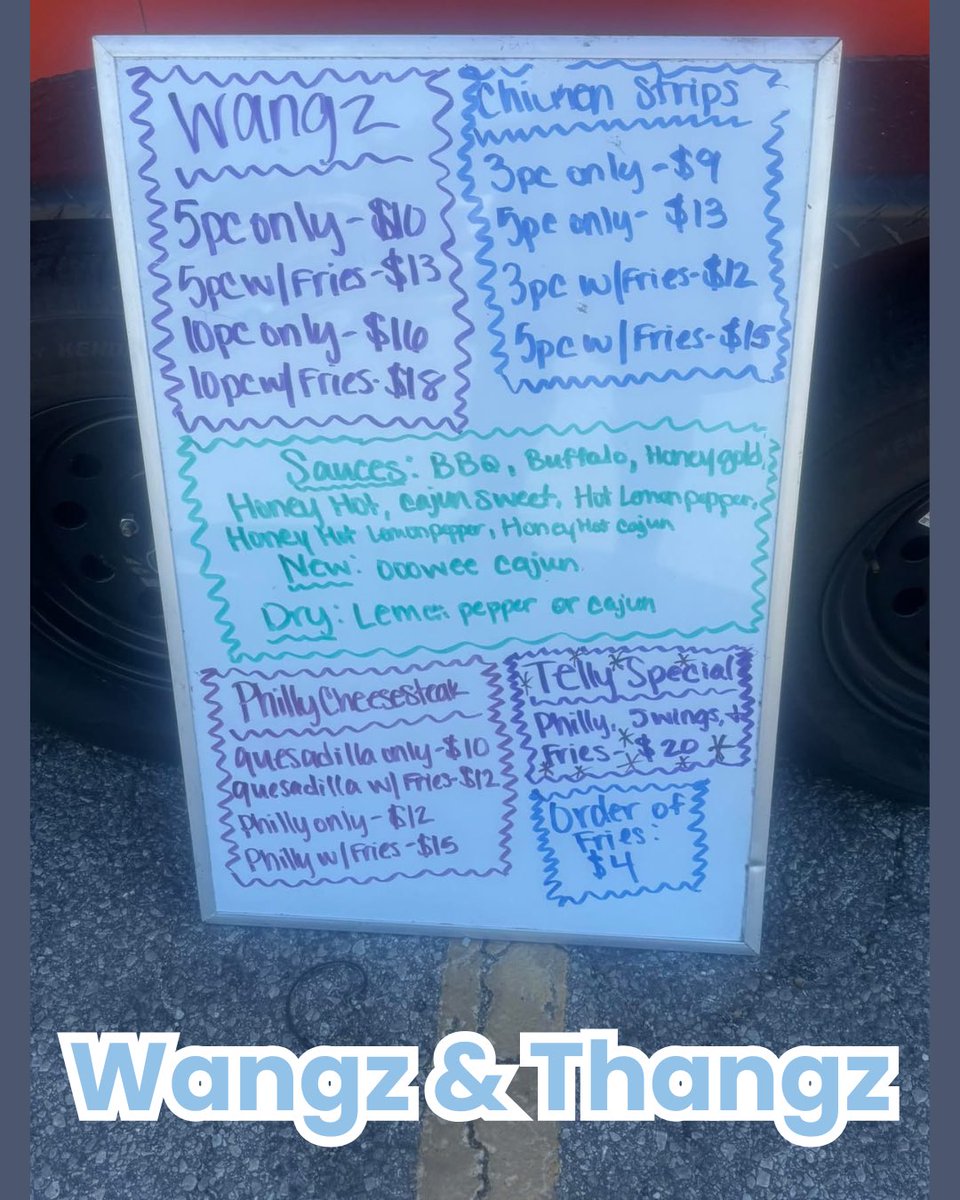 Wangz
5pc only - $10
5pc w/Fries - $13
10pc only - $16
10pc w/ Fries - $18
Chicken Strips
3pc only - $9
5pc only - $13
3pc w/Fries - $12
5pc w/Fries - $15
Sauces: BBQ, Buffalo, Honey gold,
Honey Hot, cajun sweet, Hot Lemon pepper,
Honey Hot Lemon pepper, Honey Hot cajun
New: ooowee cajun
Dry: Lemon pepper or cajun
Philly Cheesesteak
quesadilla only - $10
quesadilla w/Fries - $12
Philly only - $12
Philly w/Fries - $15
Telly Special
Philly, 5 wings, +
Fries - $20
Order of
Fries:
$4
Wangz & Thangz